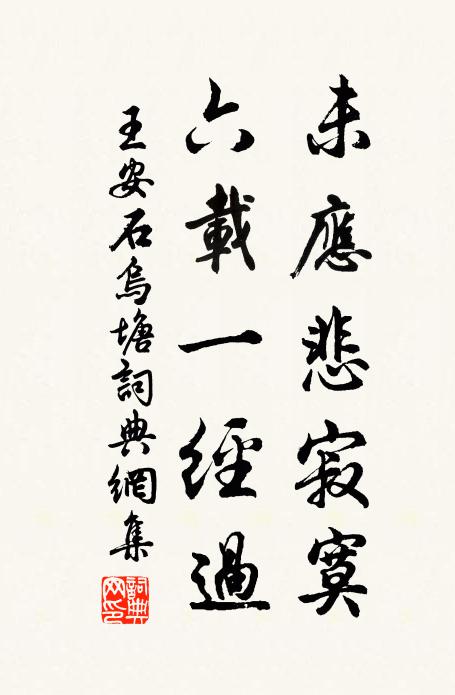 未應悲寂寞
六載一經過
王安石烏塘詞典網集
詞典網印